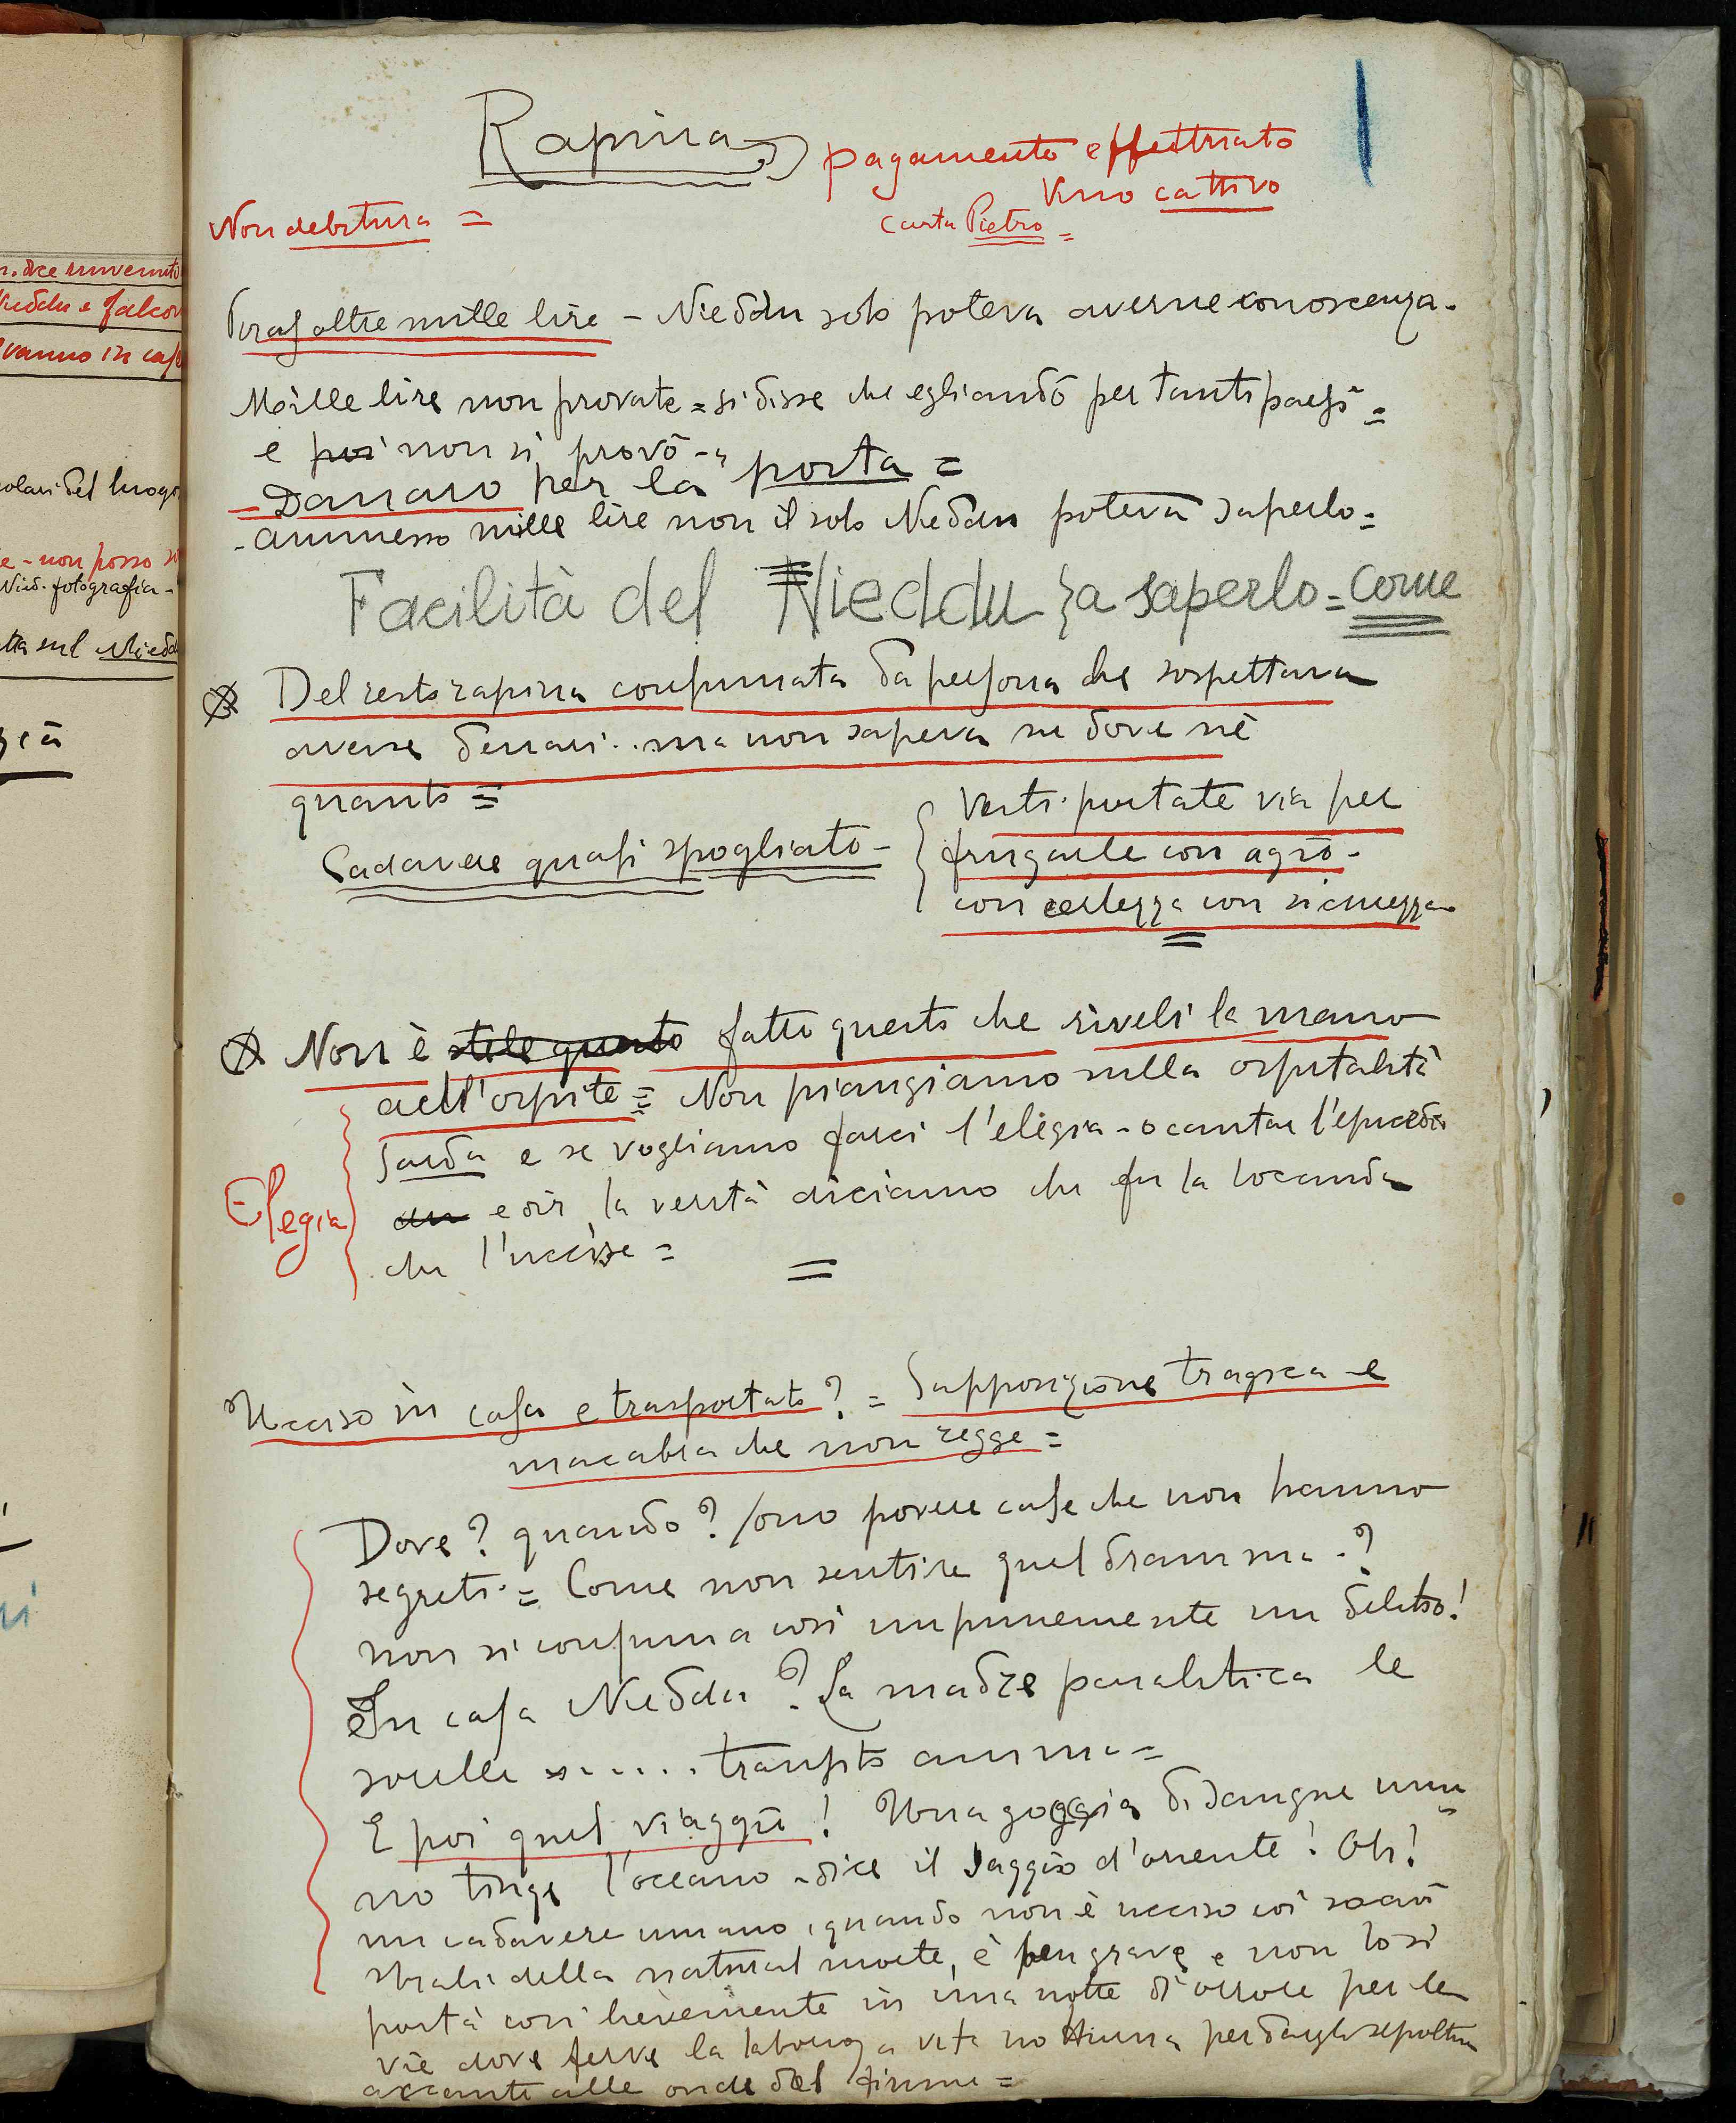 Rapina
pagamento effettuato
vino cattivo
Non debitura =
carta Pietro =
Piras oltre mille lire - Nieddu solo poteva averne conoscenza -
Mille lire non provate = si disse che egli andò per tanti paesi =
e poi non si provò -
- Danaro per la porta =
- ammesso mille lire non il solo Nieddu poteva saperlo =
Facilità del Nieddu a saperlo = come
Del resto rapina consumata da persona che sospettava
avesse denari .. ma non sapeva ne dove nè
quanto =
Cadavere quasi spogliato -
Vesti portate via per
frugarle con agio -
con certezza con sicurezza
Non è stile questo fatto questo che riveli la mano
dell'ospite = Non piangiamo sulla ospitalità
Sarda e se vogliamo farci l'elegia - o cantar l'epicedio
Elegia
e dir la verità diciamo che fu la locanda
che l'uccise =
=
Ucciso in casa e trasportato? = Supposizione tragica e
macabra che non regge =
Dove? quando? sono povere case che non hanno
segreti = Come non sentire quel dramma ?
non si consuma così impunemente un delitto!
In casa Nieddu? La madre paralitica le
sorelle ..... transito anime =
E poi quel viaggio! Una goccia di sangue uma
no tinge l'oceano - dice il saggio d'oriente! Oh!
un cadavere umano, quando non è ucciso coi soavi
strali della natural morte, è ben grave e non lo si
porta così lievemente in una notte d'orrore per le
vie dove ferve la vita notturna per dargli sepoltura
accanto alle onde del fiume =
n. dre rinvenuto
Nieddu e falcon
vanno in casa
olari del luogo
e - non posso
Nied. fotografia -
tta sul Niedd